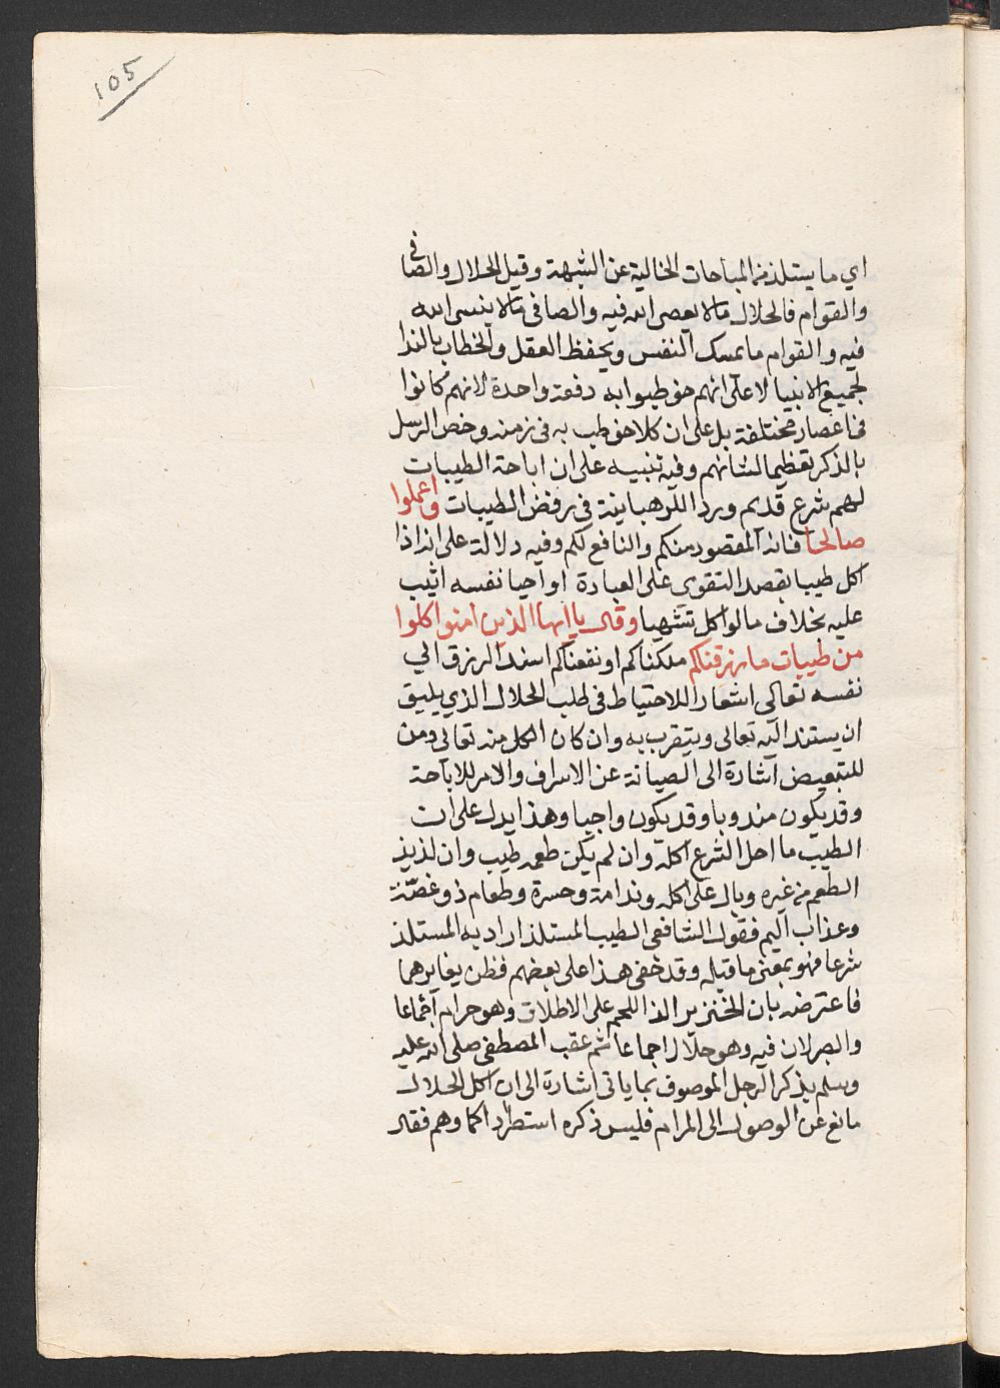 105
اي ما يستلذ من المباحات الخالية عن الشبهة وقيل الحلال والصافي
والقوام فالحلال مالا يعصى الله فيه والصافي مالا ينسى الله
فيه والقوام ما يمسك النفس ويحفظ العقل والخطاب بالندا
لجميع الانبيا لا على انهم خوطبوا به دفعة واحدة لانهم كانوا
في اعصار مختلفة بل على ان كلا خوطب به في زمنه وخص الرسل
بالذكر تعظيما لشانهم وفيه تنبيه على ان اباحة الطيبات
لهم شرع قديم ورد الرهبانية في رفض الطيبات واعملوا
صالحا فانه المقصود منكم والنافع لكم وفيه دلالة على انه اذا
اكل طيبا بقصد التقوى على العبادة او احيا نفسه اثيب
عليه بخلاف ما لو اكل تشهيا وقال يا ايها الذين امنوا كلوا
من طيبات ما رزقناكم ملكناكم او نفعناكم اسند الرزق الي
نفسه تعالى اشعارا للاحتياط في طلب الحلال الذي يليق
ان يستند اليه تعالى ويتقرب به وان كان الكل منه تعالى ومن
للتبعيض اشارة الى الصيانة عن الاسراف والامر للاباحة
وقد يكون مندوبا وقد يكون واجبا وهذا يدل على ان
الطيب ما احل الشرع اكله وان لم يكن طعمه طيب وان لذيذ
الطعم من غيره وبال على اكله وندامة وحسرة وطعام ذو غصّة
وعذاب اليم فقول الشافعي الطيب المستلذ اراد به المستلذ
شرعا فهو بمعنى ما قبله وقد خفي هذا على بعضهم فظن يغايرهما
فاعترضه بان الخنزير الذ اللحم على الاطلاق وهو حرام اجماعا
والصبر لان فيه وهو حلال اجماعا ثم عقب المصطفى صلى الله عليه
وسلم بذكر الرجل الموصوف بما ياتي اشارة الى ان اكل الحلال
مانع عن الوصول الى المرام فليس ذكره استطرادا كما وهم فقال